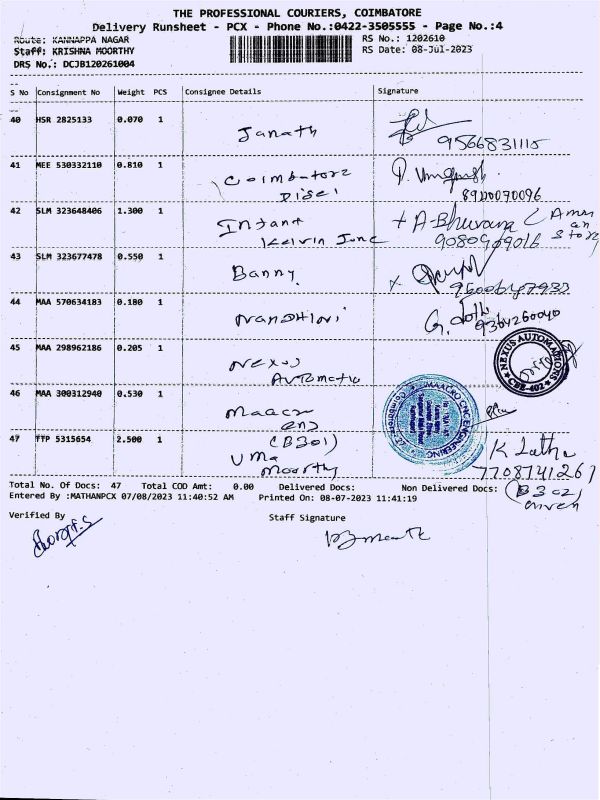 THE PROFESSIONAL COURIERS, COIMBATORE
Delivery Runsheet - PCX - Phone No.:0422-3505555 - Page No.:4
Route: KANNAPPA NAGAR
RS No.: 1202610
Staff: KRISHNA MOORTHY
RS Date: 08-Jul-2023
DRS No.: DCJB120261004
S No Consignment No Weight PCS Consignee Details Signature
40 HSR 2825133 0.070 1
Janath
9566831115
41 MEE 530332110 0.810 1
Coimbatore
Disel
8920070096
42 SLM 323648406 1.300 1
Infant
Kelvin June
A-Bhuvana
9080969016
43 SLM 323677478 0.550 1
Banny
44 MAA 570634183 0.180 1
Nandhini
9364260040
45 MAA 298962186 0.205 1
Nexus
Automatio
NEXUS AUTOMATIONS
CBE-402
46 MAA 300312940 0.530 1
Maacro
MAACRO CNC ENGINEERING
Coimbatore
47 TTP 5315654 2.500 1
(B301)
Uma
Moorthy
K Latha
7708741261
(B302)
Total No. Of Docs: 47 Total COD Amt: 0.00 Delivered Docs: Non Delivered Docs:
Entered By :MATHANPCX 07/08/2023 11:40:52 AM Printed On: 08-07-2023 11:41:19
Verified By
Staff Signature